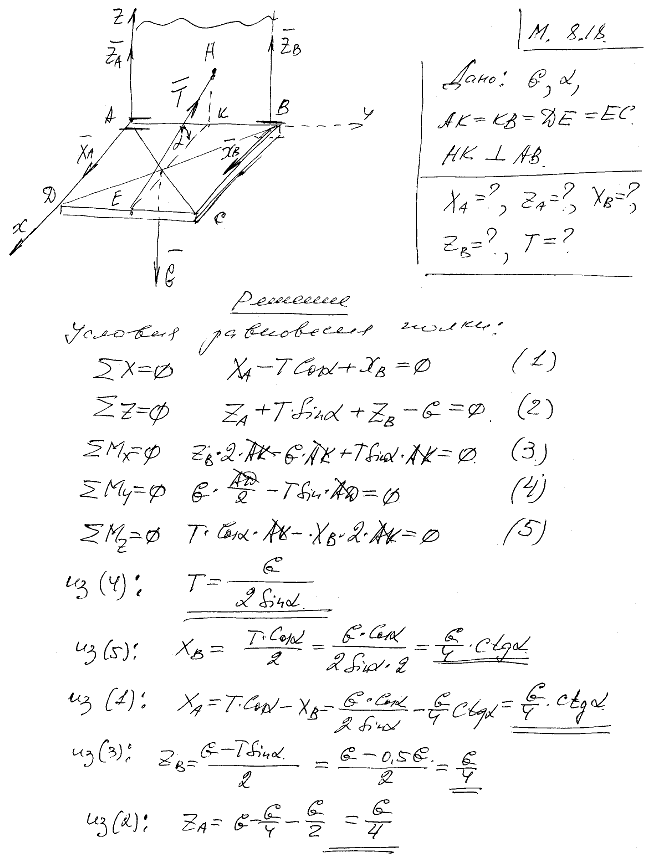 М. 8.18.
Дано: G, α,
AK = KB = DE = EC.
HK ⊥ AB.
X_A = ?, Z_A = ?, X_B = ?,
Z_B = ?, T = ?
Z
Z̄_A
Z̄_B
H
T̄
A
K
B
y
α
X̄_A
X̄_B
D
E
C
x
Ḡ
Решение
Условия равновесия полки:
ΣX=0 X_A − T Cosα + X_B = 0 (1)
ΣZ=0 Z_A + T·Sinα + Z_B − G = 0. (2)
ΣM_x=0 Z_B·2·AK − G·AK + T Sinα·AK = 0. (3.)
ΣM_y=0 G·AD/2 − T Sin·AD = 0 (4)
ΣM_z=0 T·Cosα·AK − X_B·2·AK = 0 (5)
из (4): T = G/(2 Sinα.)
из (5): X_B = T·Cosα/2 = G·Cosα/(2 Sinα·2) = G/4 · Ctgα.
из (1): X_A = T·Cosα − X_B = G·Cosα/(2 Sinα) − G/4 Ctgα = G/4 · ctgα.
из (3): Z_B = (G − T Sinα.)/2 = (G − 0,5G.)/2 = G/4
из (2): Z_A = G − G/4 − G/2 = G/4